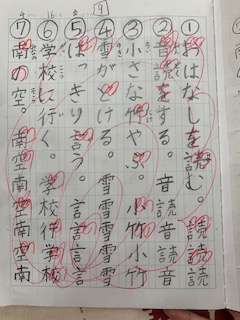 ①おはなしを読む。 読読読
②音読をする。 音読音
③小さな竹やぶ。 小竹小竹
④雪がとける。 雪雪雪
⑤はっきり言う。 言言言言
⑥学校に行く。 学校行学校
⑦南の空。 南空南空南空南